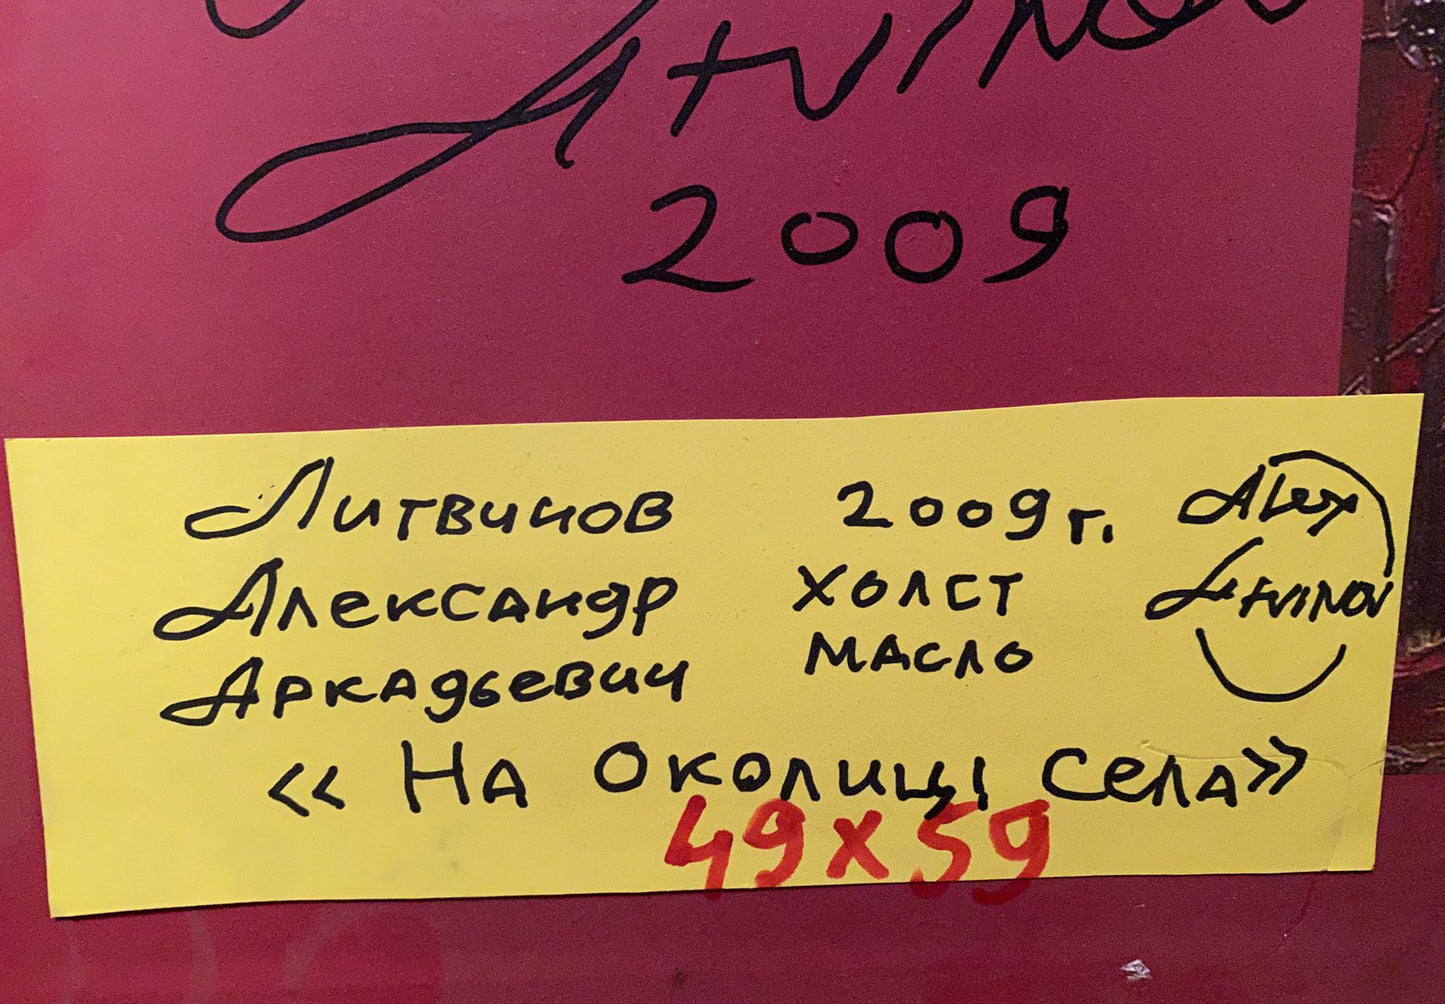 Litvinov
2009
Литвинов 2009 г. Alex
Александр холст Litvinov
Аркадьевич масло
« На околиці села»
49х59